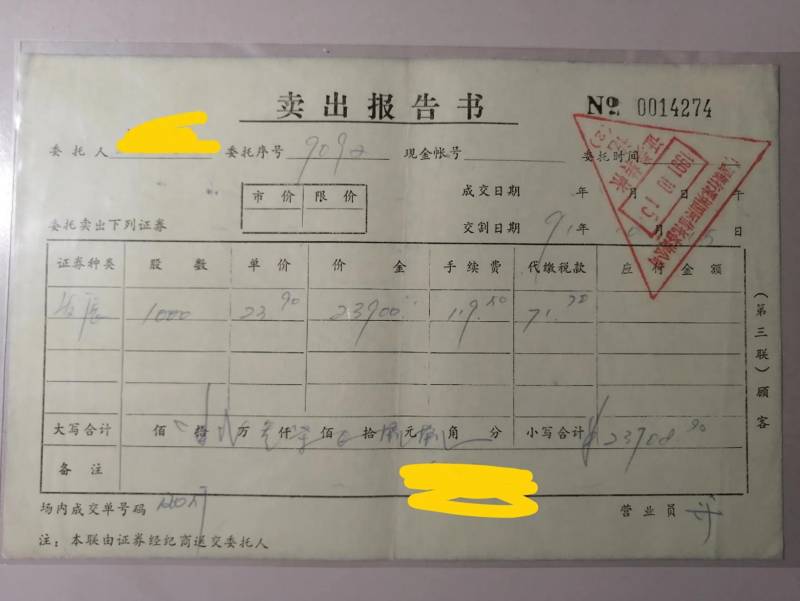 卖出报告书 №0014274
委托人 委托序号 现金帐号 委托时间
市价 限价 成交日期 年 月 日 午
委托卖出下列证券 交割日期 91年 月 日
1991.10.15
证券种类 股数 单价 价金 手续费 代缴税款 应付金额
发展 1000 23.90 23900 119.50 71.70
大写合计 佰 拾 万 仟 佰 拾 元 角 分 小写合计 ¥23708.90
备注
场内成交单号码 营业员
注：本联由证券经纪商送交委托人
（第三联）顾客